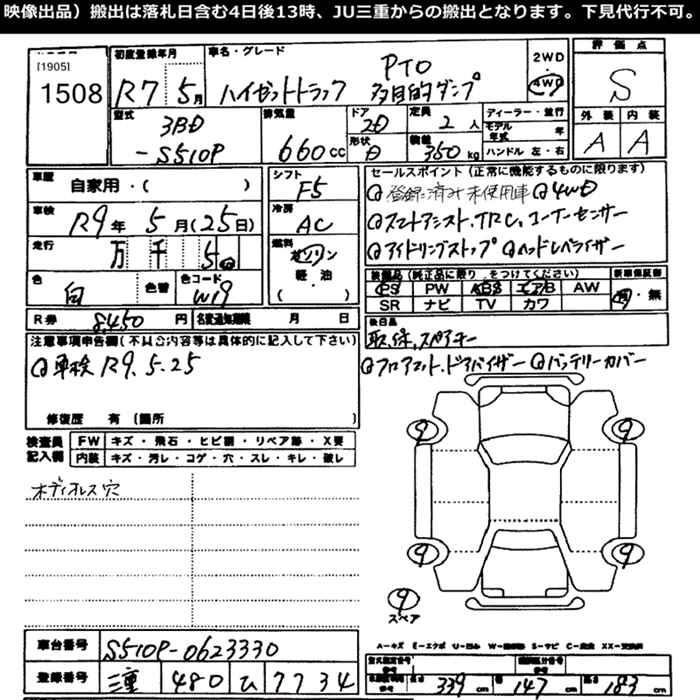 映像出品）搬出は落札日含む4日後13時、JU三重からの搬出となります。下見代行不可。
[1905]
1508
初度登録年月
R7 5月
車名・グレード
ハイゼットトラック PTO 多目的ダンプ
2WD
4WD
評価点
S
型式
3BD
-S510P
排気量
660cc
ドア
2D
形状
定員
2人
積載
350kg
ディーラー・並行
モデル年式 年
ハンドル 左・右
外装 内装
A A
車歴
自家用・( )
車検
R9年 5月(25日)
走行
万 千 5
色
白
色替
色コード
W19
シフト
F5
冷房
AC
燃料
ガソリン
軽・油
( )
セールスポイント（正常に機能するものに限ります）
登録済み未使用車 4WD
スマートアシスト、TRC、コーナーセンサー
アイドリングストップ ヘッドレベライザー
装備品（純正品に限り をつけてください）
PS PW ABS エアB AW
SR ナビ TV カワ
新車保証書
有・無
R券 8,450円
名変通知期限 月 日
後日品
取、保、スペアキー
フロアマット、ドアバイザー バッテリーカバー
注意事項申告欄(不具合内容等は具体的に記入して下さい)
車検 R9.5.25
修復歴 有(箇所 )
検査員記入欄
FW キズ・飛石・ヒビ割・リペア跡・X要
内装 キズ・汚レ・コゲ・穴・スレ・キレ・破レ
ボディオレス穴
9 9
9 9
9
スペア
車台番号 S510P-0623330
登録番号 三重 480 ひ 7734
A－キズ E－エクボ U－凹ミ S－サビ
型式指定番号
類別区分番号
長さ 339cm
幅 147cm
高さ 193cm